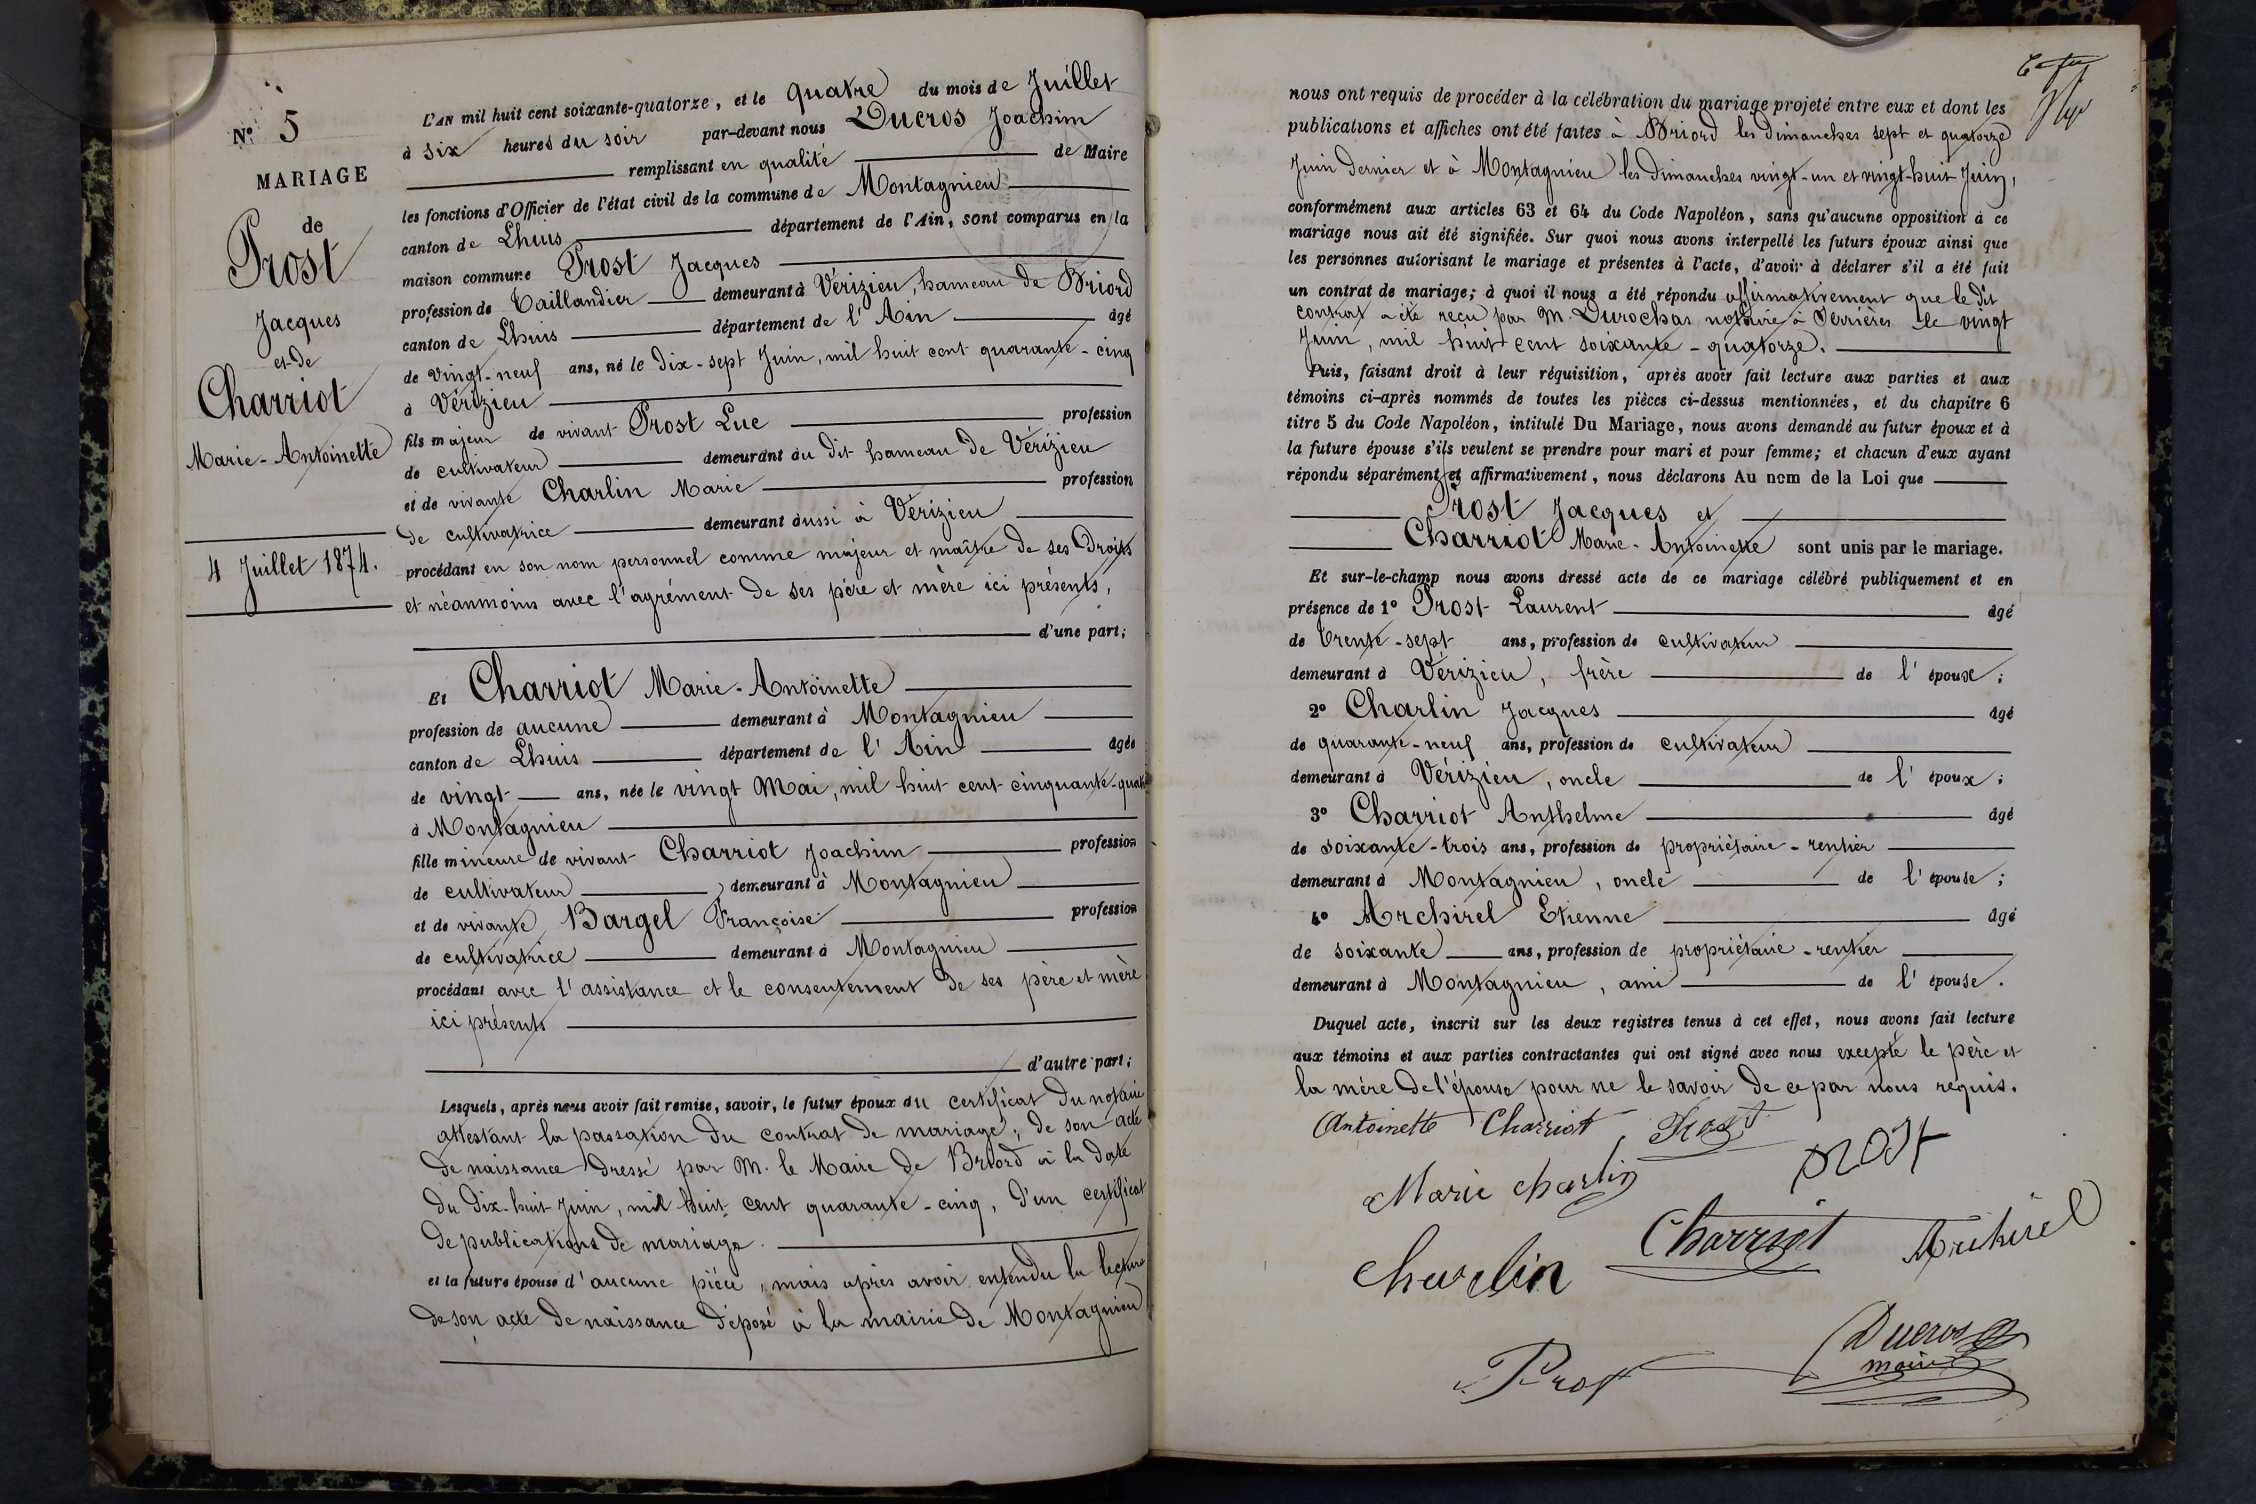 N° 5
MARIAGE
de
Prost
Jacques
et de
Charriot
Marie-Antoinette
4 Juillet 1874.
L'AN mil huit cent soixante-quatorze, et le quatre du mois de Juillet
à six heures du soir par-devant nous Ducros Joachim
remplissant en qualité de Maire
les fonctions d'Officier de l'état civil de la commune de Montagnieu
canton de Lhuis département de l'Ain, sont comparus en la
maison commune Prost Jacques
profession de Taillandier demeurant à Vérizieu, hameau de Briord
canton de Lhuis département de l'Ain âgé
de vingt-neuf ans, né le dix-sept Juin, mil huit cent quarante-cinq
à Vérizieu
fils majeur de vivant Prost Luc profession
de cultivateur demeurant au dit hameau de Vérizieu
et de vivante Charlin Marie profession
de cultivatrice demeurant aussi à Vérizieu
procédant en son nom personnel comme majeur et maître de ses droits
et néanmoins avec l'agrément de ses père et mère ici présents,
d'une part;
Et Charriot Marie-Antoinette
profession de aucune demeurant à Montagnieu
canton de Lhuis département de l'Ain âgée
de vingt ans, née le vingt Mai, mil huit cent cinquante-quatre
à Montagnieu
fille mineure de vivant Charriot Joachim profession
de cultivateur demeurant à Montagnieu
et de vivante Bargel Françoise profession
de cultivatrice demeurant à Montagnieu
procédant avec l'assistance et le consentement de ses père et mère
ici présents
d'autre part;
Lesquels, après nous avoir fait remise, savoir, le futur époux du certificat du notaire
attestant la passation du contrat de mariage; de son acte
de naissance dressé par M. le Maire de Briord à la date
du dix-huit Juin, mil huit cent quarante-cinq, d'un certificat
de publications de mariage.
et la future épouse d'aucune pièce, mais après avoir entendu la lecture
de son acte de naissance déposé à la mairie de Montagnieu
nous ont requis de procéder à la célébration du mariage projeté entre eux et dont les
publications et affiches ont été faites à Briord les dimanches sept et quatorze
Juin dernier et à Montagnieu les dimanches vingt-un et vingt-huit Juin,
conformément aux articles 63 et 64 du Code Napoléon, sans qu'aucune opposition à ce
mariage nous ait été signifiée. Sur quoi nous avons interpellé les futurs époux ainsi que
les personnes autorisant le mariage et présentes à l'acte, d'avoir à déclarer s'il a été fait
un contrat de mariage; à quoi il nous a été répondu affirmativement que le dit
contrat a été reçu par M. Durochas notaire à Serrières le vingt
Juin, mil huit cent soixante-quatorze.
Puis, faisant droit à leur réquisition, après avoir fait lecture aux parties et aux
témoins ci-après nommés de toutes les pièces ci-dessus mentionnées, et du chapitre 6
titre 5 du Code Napoléon, intitulé Du Mariage, nous avons demandé au futur époux et à
la future épouse s'ils veulent se prendre pour mari et pour femme; et chacun d'eux ayant
répondu séparément et affirmativement, nous déclarons Au nom de la Loi que
Prost Jacques et
Charriot Marie-Antoinette sont unis par le mariage.
Et sur-le-champ nous avons dressé acte de ce mariage célébré publiquement et en
présence de 1° Prost Laurent âgé
de trente-sept ans, profession de cultivateur
demeurant à Vérizieu, frère de l'époux;
2° Charlin Jacques âgé
de quarante-neuf ans, profession de cultivateur
demeurant à Vérizieu, oncle de l'époux;
3° Charriot Anthelme âgé
de soixante-trois ans, profession de propriétaire-rentier
demeurant à Montagnieu, oncle de l'épouse;
4° Archirel Etienne âgé
de soixante ans, profession de propriétaire-rentier
demeurant à Montagnieu, ami de l'épouse.
Duquel acte, inscrit sur les deux registres tenus à cet effet, nous avons fait lecture
aux témoins et aux parties contractantes qui ont signé avec nous excepté le père et
la mère de l'épouse pour ne le savoir de ce par nous requis.
Antoinette Charriot Prost
Marie charlin prost
charlin Charriot Archirel
Prost Ducros
maire